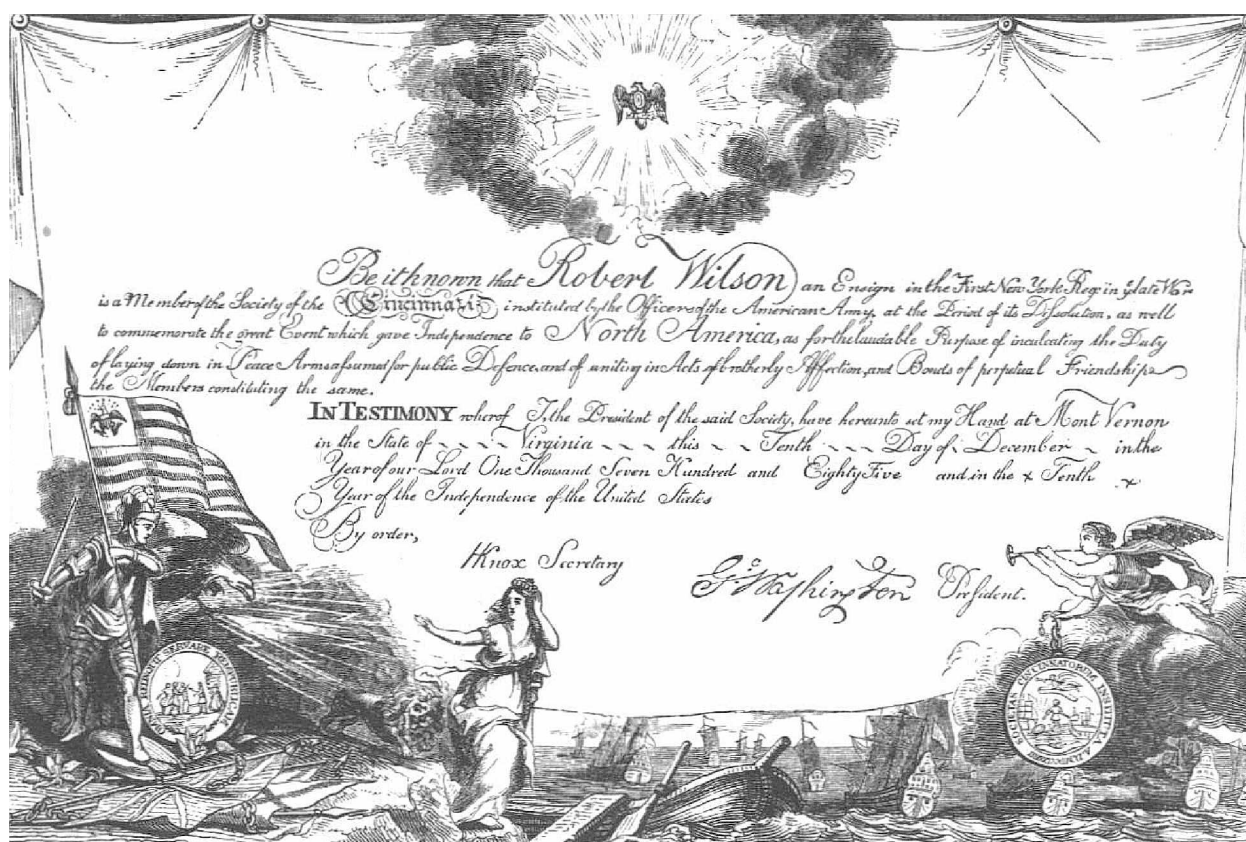 Be it known that Robert Wilson an Ensign in the First New York Reg: in ye late War
is a Member of the Society of the Cincinnati instituted by the Officers of the American Army, at the Period of its Dissolution, as well
to commemorate the great Event which gave Independence to North America, as for the laudable Purpose of inculcating the Duty
of laying down in Peace Arms assumed for public Defence, and of uniting in Acts of brotherly Affection, and Bonds of perpetual Friendship
the Members constituting the same.
IN TESTIMONY wherof I, the President of the said Society, have hereunto set my Hand at Mont Vernon
in the State of Virginia this Tenth Day of December in the
Year of our Lord One Thousand Seven Hundred and Eighty Five and in the Tenth
Year of the Independence of the United States
By order,
HKnox Secretary
Go Washington President.
OMNIA SERVARE REMPUBLICAM
SOCIETAS CINCINNATORUM INSTITUTA AD